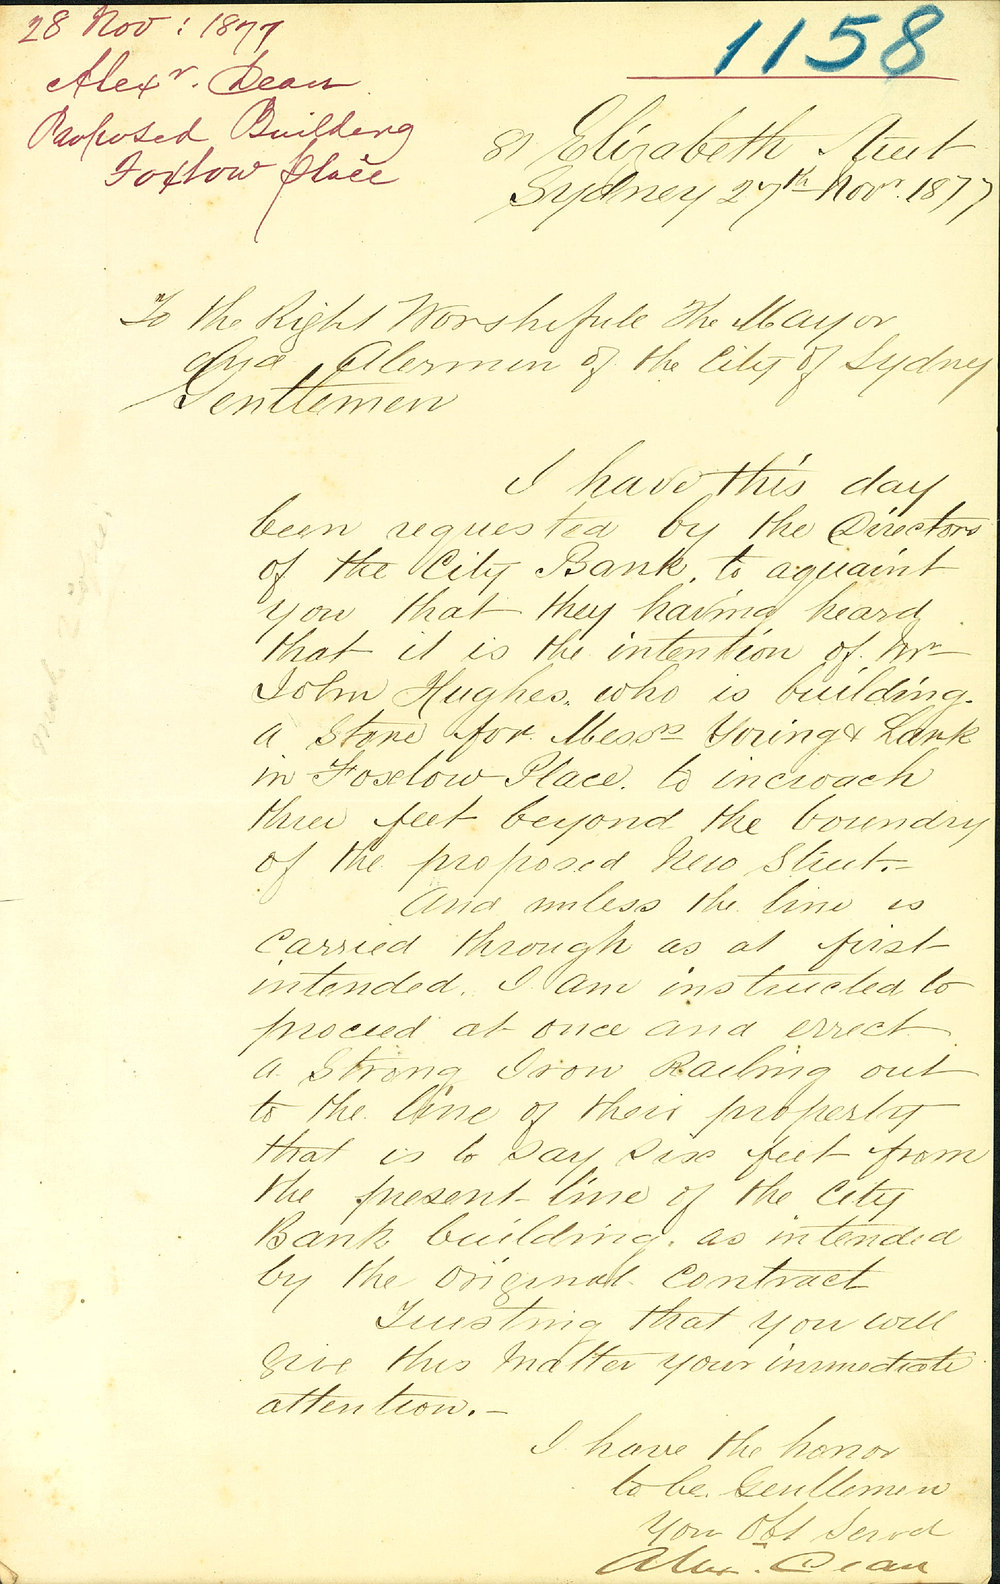 28 Nov: 1877
Alexr. Dean
Proposed Building
Foxlow Place
1158
81 Elizabeth Street
Sydney 27th Novr. 1877
To the Right Worshifull The Mayor
And Alermen of the City of Sydney
Gentlemen
I have this day
been requested by the Directors
of the City Bank, to aquaint
you that they having heard
that it is the intention of Mr
John Hughes. who is building.
a Store for Messrs Young & Lark
in Foxlow Place. to incroach
three feet beyond the boundry
of the proposed New Street.-
And unless the line is
carried through as at first
intended. I am instructed to
proceed at once and errect
a Strong Iron Railing out
to the line of their property
that is to say six feet from
the present line of the City
Bank building. as intended
by the original contract
Trusting that you will
give this matter your immediate
attention.-
I have the honor
to be. Gentlemen
Your Obt Servd
Alexr. Dean